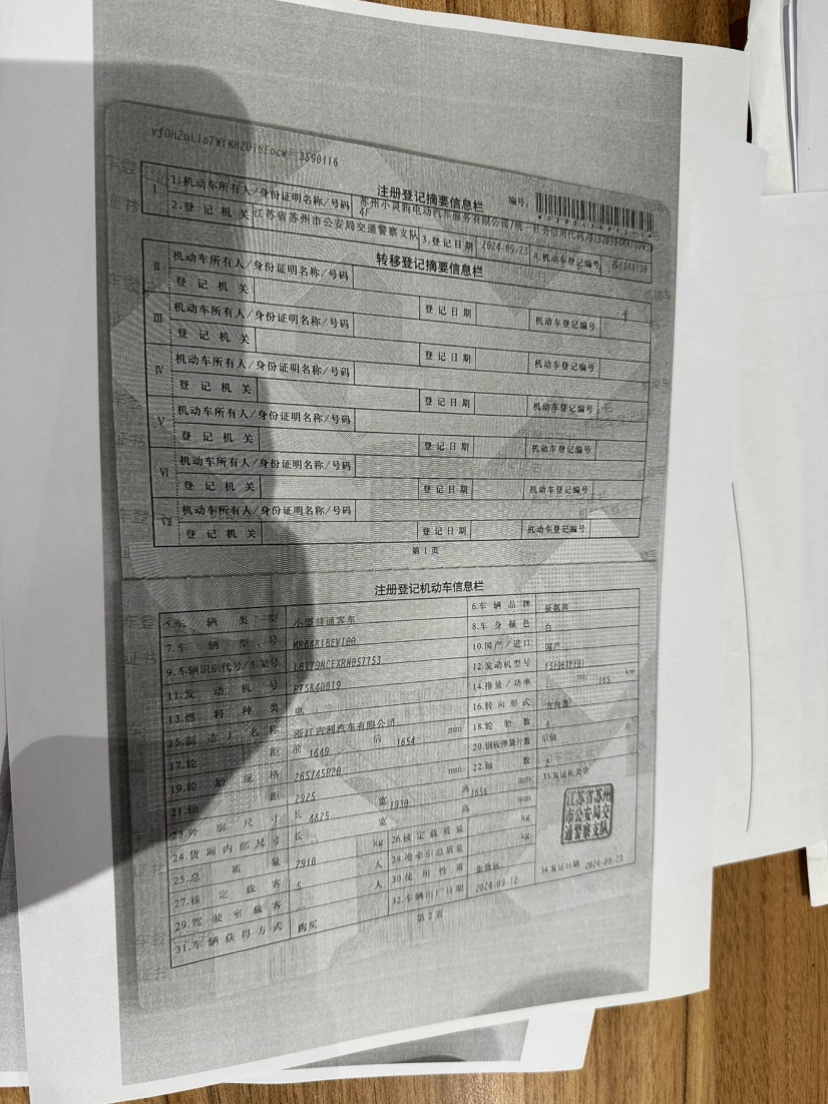 注册登记摘要信息栏
编号:
I 1.机动车所有人/身份证明名称/号码
2.登记机关 江苏省苏州市公安局交通警察支队 3.登记日期 2024-09-23 4.机动车登记编号
转移登记摘要信息栏
II 机动车所有人/身份证明名称/号码
登记机关 登记日期 机动车登记编号
III 机动车所有人/身份证明名称/号码
登记机关 登记日期 机动车登记编号
IV 机动车所有人/身份证明名称/号码
登记机关 登记日期 机动车登记编号
V 机动车所有人/身份证明名称/号码
登记机关 登记日期 机动车登记编号
VI 机动车所有人/身份证明名称/号码
登记机关 登记日期 机动车登记编号
VII 机动车所有人/身份证明名称/号码
登记机关 登记日期 机动车登记编号
第1页
注册登记机动车信息栏
5.车辆类型 小型普通客车 6.车辆品牌
7.车辆型号 8.车身颜色 白
9.车辆识别代号/车架号 10.国产/进口 国产
11.发动机号 12.发动机型号
13.燃料种类 电 14.排量/功率 ml/ kw
15.制造厂名称 浙江吉利汽车有限公司 16.转向形式 方向盘
17.轮距 前 1649 后 1654 mm 18.轮胎数 4
19.轮胎规格 265/45R20 20.钢板弹簧片数 后轴 片
21.轴距 2925 mm 22.轴数 2
23.外廓尺寸 长 4825 宽 1930 高 1656 mm 33.发证机关章
24.货厢内部尺寸 长 宽 高 mm
江苏省苏州市公安局交通警察支队
25.总质量 2910 kg 26.核定载质量 kg
27.核定载客 5 人 28.准牵引总质量 kg
29.驾驶室载客 人 30.使用性质
31.车辆获得方式 购买 32.车辆出厂日期 2024-09-12 34.发证日期 2024-09-23
第2页